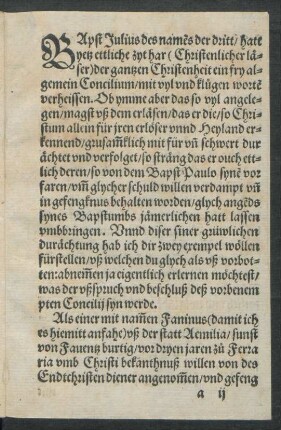 BApst Julius des namēs der dritt/ hatt
yetz ettliche zyt har (Christenlicher lä-
ser) der gantzen Christenheit ein fry al-
gemein Concilium/ mit vyl vnd klůgen wortē
verheissen. Ob ymme aber das so vyl angele-
gen/ magst vß dem erläsen/ das er die/ so Chri-
stum allein für jren erlöser vnnd Heyland er-
kennend/ grusam̄klich mit für vn̄ schwert dur
ächtet vnd verfolget/ so sträng das er ouch ett-
lich deren/ so von dem Bapst Paulo synē vor
faren/ vm̄ glycher schuld willen verdampt vn̄
in gefengknus behalten worden/ glych angēds
synes Bapstumbs jämerlichen hatt lassen
vmbbringen. Vnnd diser siner grüwlichen
durächtung hab ich dir zwey exempel wöllen
fürstellen/ vß welchen du glych als vß vorbot-
ten: abnem̄en ja eigentlich erlernen möchtest/
was der vßspruch vnd beschluß deß vorbenem
pten Concilij syn werde.
Als einer mit nam̄en Faninus (damit ich
es hiemitt anfahe) vß der statt Aemilia/ sunst
von Fauentz burtig/ vor dryen jaren zů Ferra
ria vmb Christi bekanthnuß willen von des
Endtchristen diener angenom̄en/ vnd gefeng
a ij